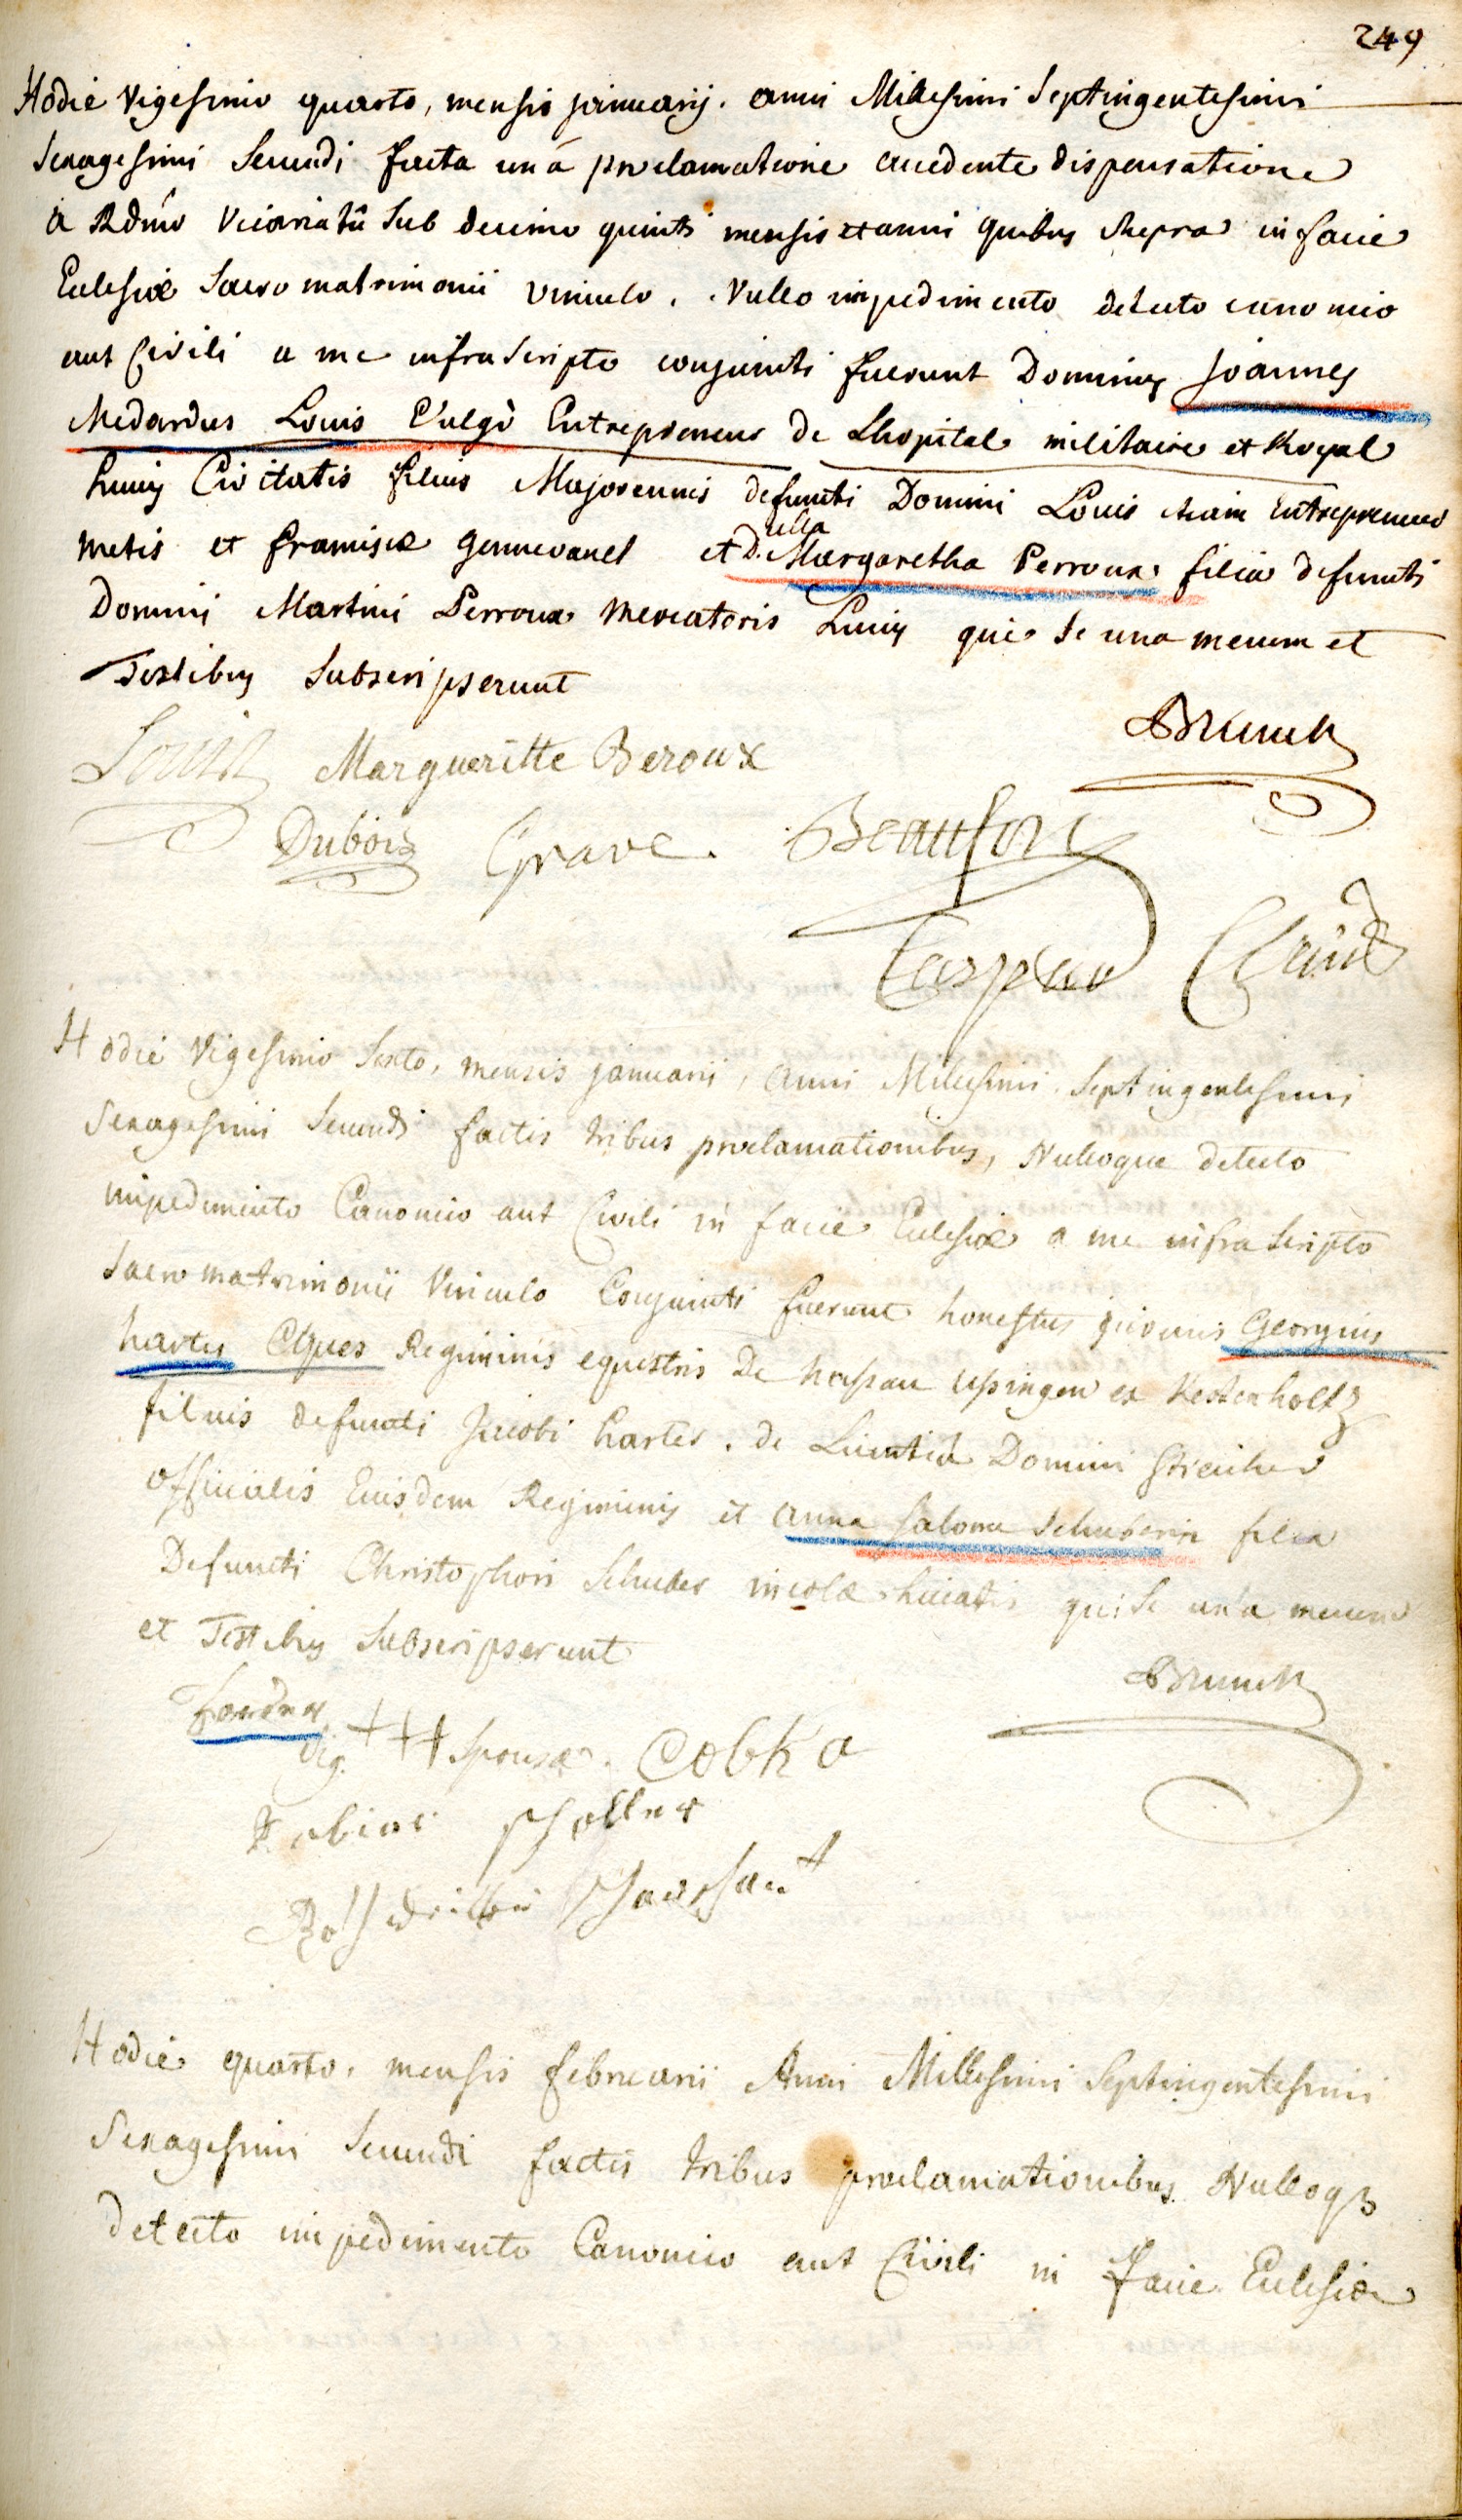 249
Hodie Vigesimo quarto, mensis januarij. anni Millesimi Septingentesimi
Sexagesimi Secundi facta unâ proclamatione accedente dispensatione
a Rdmo Vicariatu sub decimo quinti mensis et anni quibus supra in facie
Eclesiæ Sacro matrimonii vinculo. Nullo impedimento detecto canonico
aut Civili a me infra scripto conjuncti fuerunt Dominus Joannes
Medardus Louis Vulgò Entrepreneur de Lhopital militaire et Royal
hujus Civitatis filius Majorennis defuncti Domini Louis etiam Entrepreneur
Metis et franciscæ et D.ella Margaretha Perroux filia defuncti
Domini Martini Perroux Mercatoris hujus qui se una mecum et
Testibus Subscripserunt
Louis Margueritte Beroux Brunck
Dubois Grave. Beaufort
Hodie Vigesimo Sexto, mensis januarii, anni Millesimi Septingentesimi
Sexagesimi Secundi factis tribus proclamationibus, Nulloque detecto
impedimento Canonico aut Civili in facie Eclesiæ a me infra scripto
Sacro matrimonii Vinculo Conjuncti fuerunt honestus juvenis Georgius
harter Eques Regiminis equestris De Nassau Usingen ex Kestenholtz
filius defuncti Jacobi harter. de Licentia Domini
officialis Eiusdem Regiminis et anna salome Schuberin filia
Defuncti Christophori Schuber incolæ huiatis qui se una mecum
et Testibus Subscripserunt
Brunck
Sig. +++ Sponsæ. Cobka
Hodie quarto, mensis februarii Anni Millesimi Septingentesimi
Sexagesimi Secundi factis tribus proclamationibus Nulloq3
detecto impedimento Canonico aut Civili in facie Eclesiæ